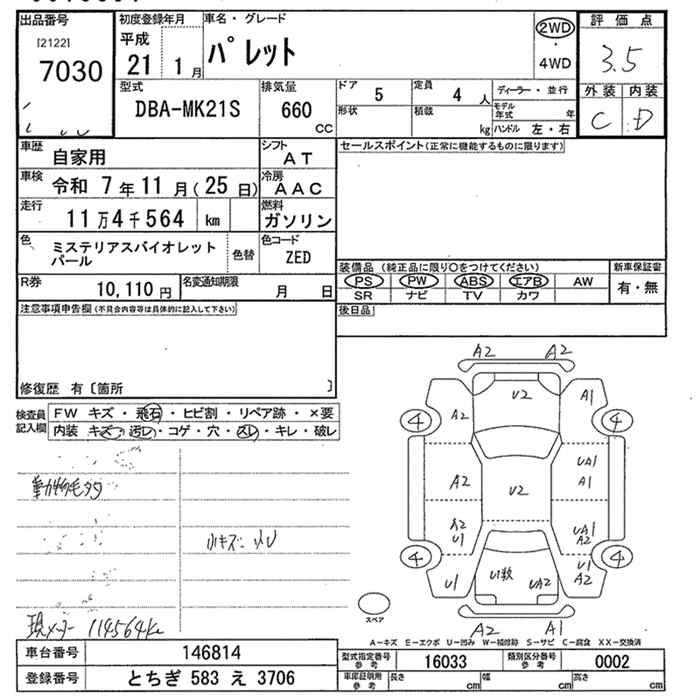 出品番号
[2122]
7030
初度登録年月
平成
21 1月
車名・グレード
パレット
2WD
・
4WD
評価点
3.5
外装 内装
C D
型式
DBA-MK21S
排気量
660
cc
ドア
5
形状
定員
4人
積載
kg
ディーラー・並行
モデル年式 年
ハンドル 左・右
車歴
自家用
シフト
AT
車検
令和 7年11月(25日)
冷房
AAC
走行
11万4千564 km
燃料
ガソリン
色
ミステリアスバイオレットパール
色替
色コード
ZED
R券
10,110円
名変通知期限
月 日
セールスポイント(正常に機能するものに限ります)
装備品 (純正品に限り○をつけてください)
PS PW ABS エアB AW
SR ナビ TV カワ
新車保証書
有・無
後日品
注意事項申告欄(不具合内容等は具体的に記入して下さい)
修復歴 有〔箇所 〕
検査員記入欄
FW キズ・飛石・ヒビ割・リペア跡・×要
内装 キズ・汚レ・コゲ・穴・スレ・キレ・破レ
動物毛タタ
小キズ 小U
現メーター 114564km
A2 A2
A2 U2 A1
4 4
UA1
A1
A2 U2
A2
U1
UA1
A2
4 4
U1 U1数 UA2
U1
A2
A2 A1
スペア
A-キズ E-エクボ U-凹み W-補修跡 S-サビ C-腐食 XX-交換済
車台番号 146814
登録番号 とちぎ 583 え 3706
型式指定番号参考 16033
類別区分番号参考 0002
車庫証明用参考 長さ cm 幅 cm 高さ cm